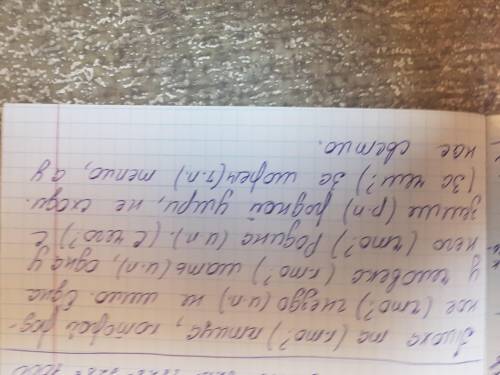 Глиха та (кто?) птица, которой род-
ное (что?) гнездо (и.п) не мило. Одна
у человека (кто?) мать (и.п), одна у
него (что?) Родина (и.п). (С чего?) С
земли (р.п) родной умри, не сходи.
(За чем?) За морем (т.п) тепло, а у
нас светло.